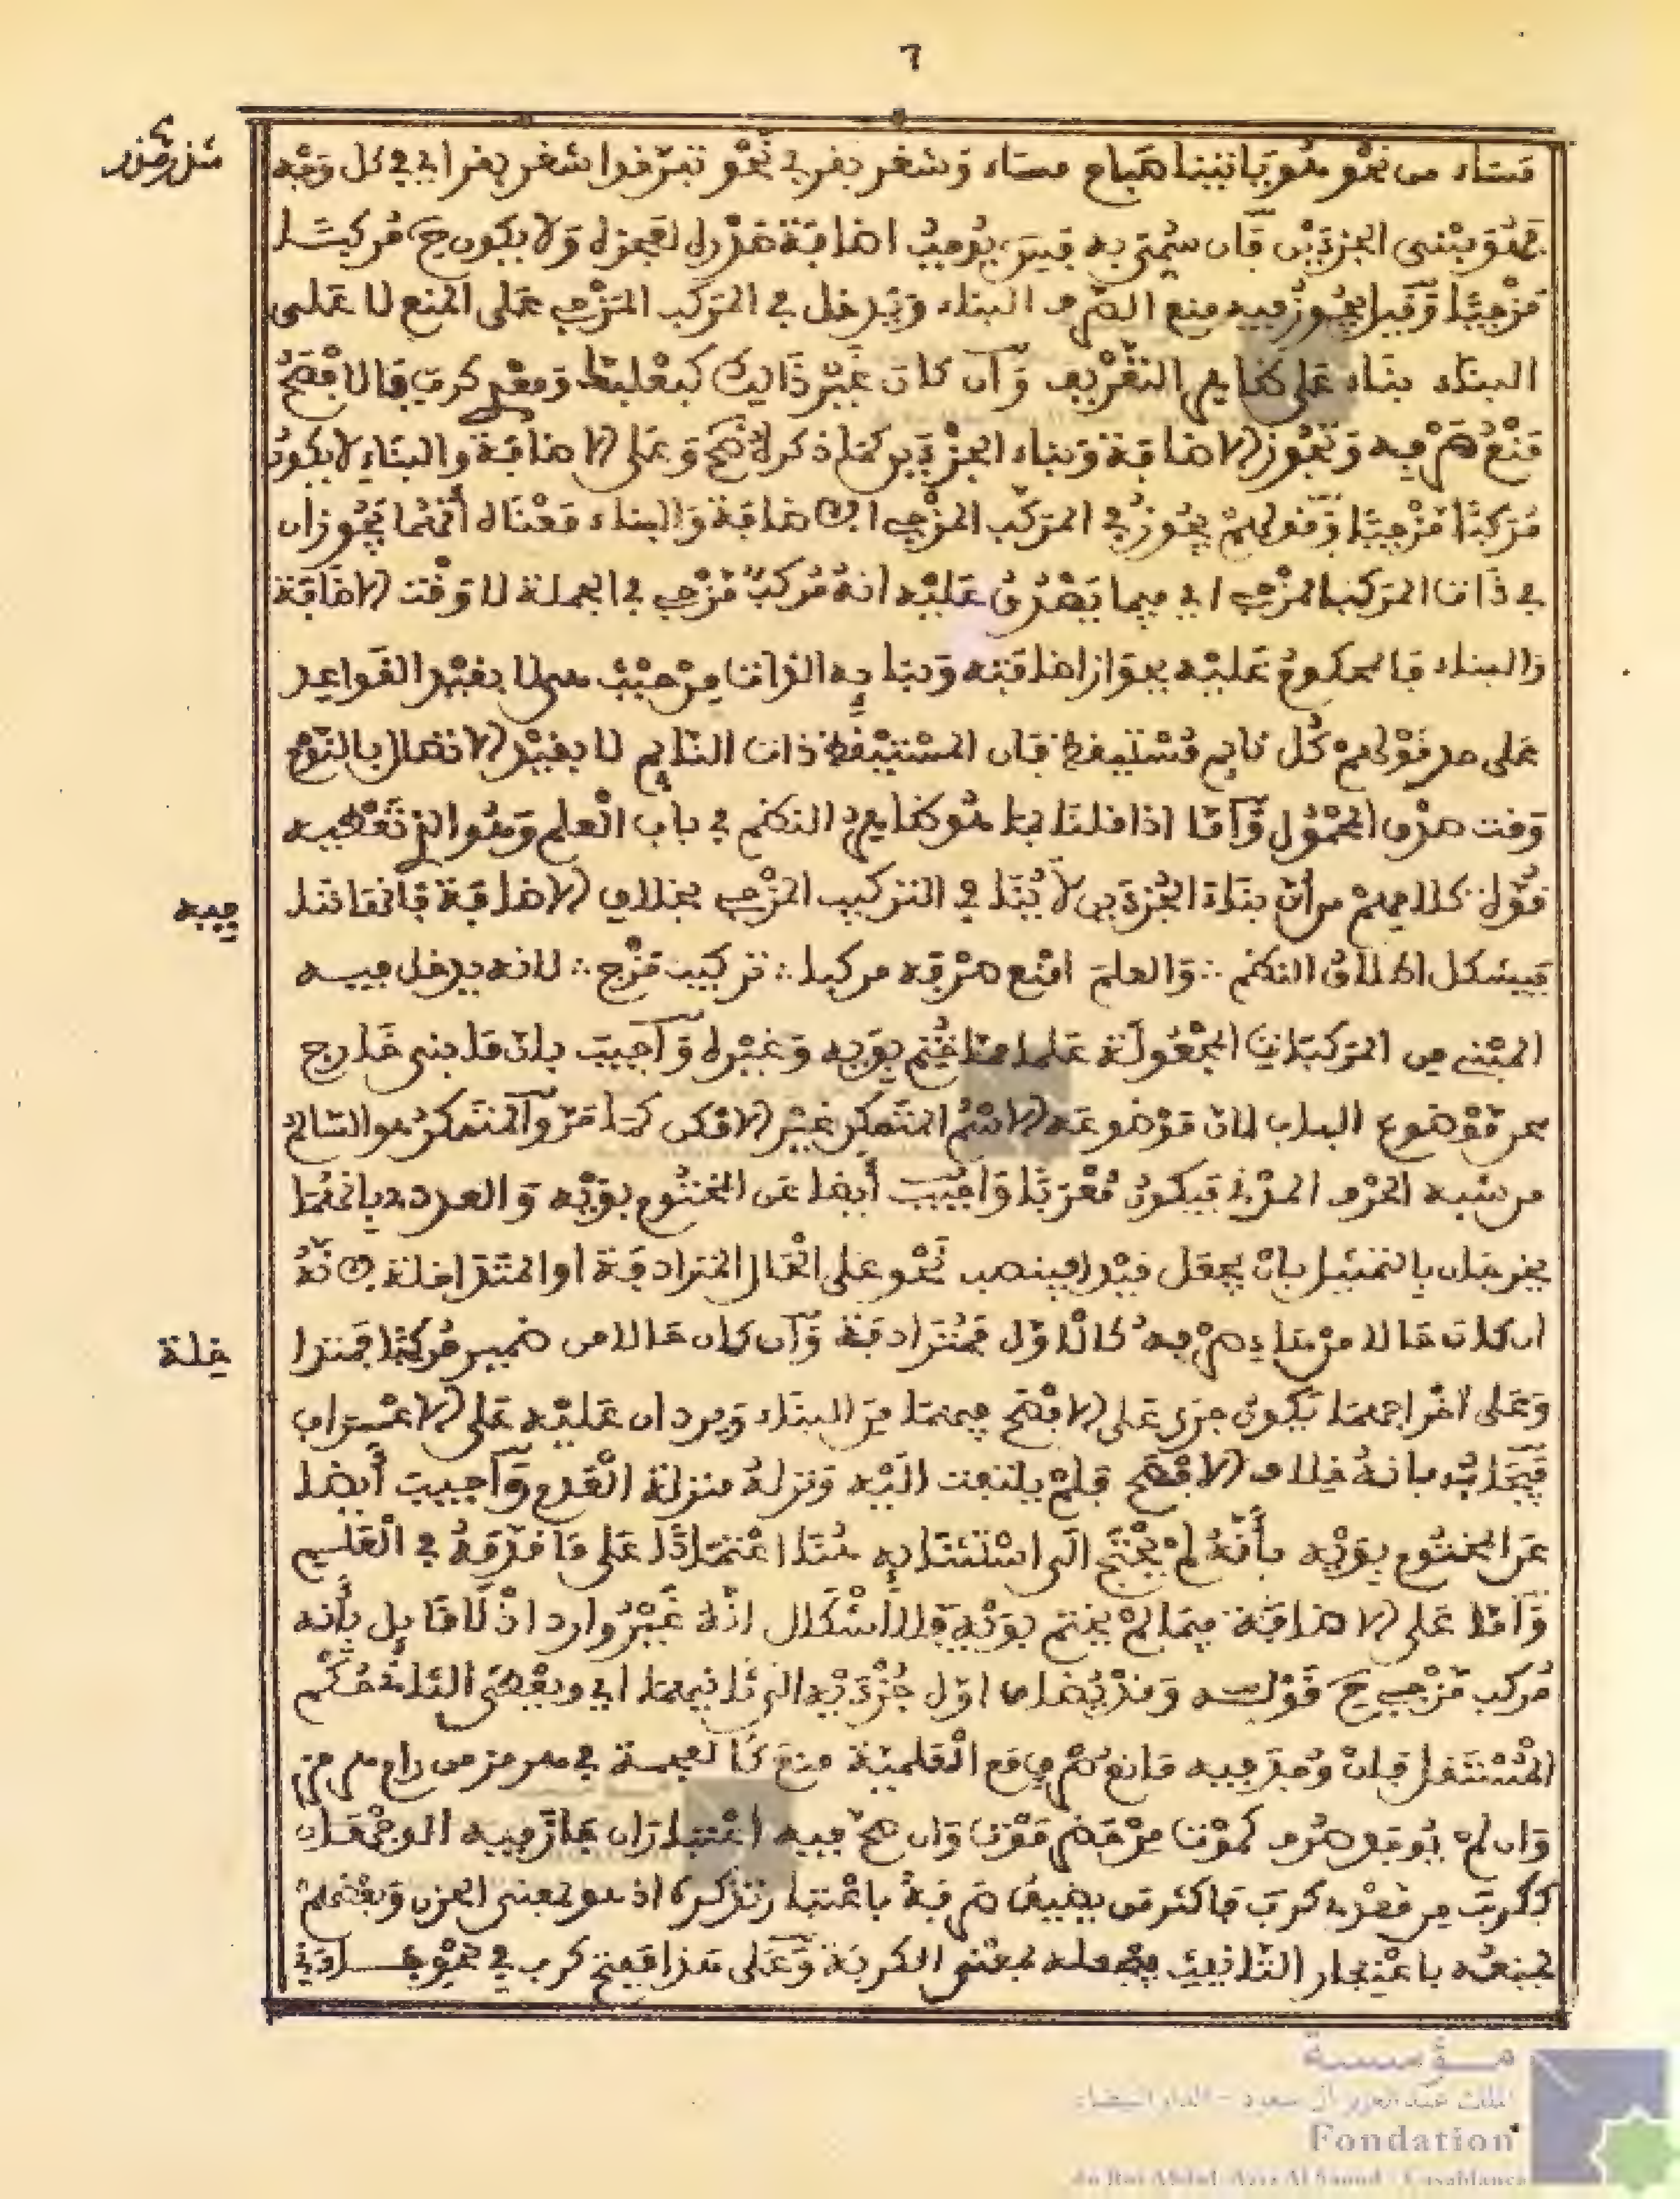 ٦
مساء من نحو هو ياتينا صباح مساء وشغر بغر في نحو تفرقوا شغر بغر اي في كل وجه
شذر مذر
فهو مبني الجزءين فان سمي به فقيل يوجب اضافة صدره لعجزه ولا يكون ح مركبا
مزجيا وقيل يجوز فيه منع الصرف والبناء ويدخل في المركب المزجي على المنع لا على
البناء بناء على ظاهر التعريف وان كان غير ذالك كبعلبك ومعدي كرب فالافصح
منع صرفه وتجوز الاضافة وبناء الجزءين كما ذكر لاكن وعلى الاضافة والبناء لا يكون
مركبا مزجيا وقولهم يجوز في المركب المزجي الاضافة والبناء معناه انهما يجوزان
في ذات المركب المزجي اي فيما يصدق عليه انه مركب مزجي في الجملة لا وقت الاضافة
والبناء فالمحكوم عليه بجواز اضافته وبنايه الذات من حيث هي لا بقيد القواعد
على حد قولهم كل نايم مستيقظ فان المستيقظ ذات النايم لا بقيد الاتصال بالنوم
وقت صدق المحمول واما اذا قلنا بما هو ظاهر النظم في باب العلم وهو الذي تعطيه
قوة كلامهم من ان بناء الجزءين لا ينافي التركيب المزجي بخلاف الاضافة فانها تنا
فيه
فيشكل اطلاق النظم ∴ والعلم امنع صرفه مركبا ∴ تركيب مزج ∴ لانه يدخل فيه
المبني من المركبات المجعولة علما مما ختم بويه وغيره واجيب بان ما بني خارج
عن موضوع الباب لان موضوعه الاسم المتمكن غير الامكن كما مر والمتمكن هو السالم
من شبه الحرف المدني فيكون معربا واجيب ايضا عن المختوم بويه والعدد بانهما
يخرجان بالتمثيل بان يجعل قيدا فينصب نحو على الحال المترادفة او المتداخلة لانه
ان كان حالا من هاء صرفه كالاول فمترادفة وان كان حالا من ضمير مركبا فمتدا
خلة
وعلى اخراجهما يكون جرى على الافصح فيهما من البناء ويردان عليه على الاعراب
فيجاب بانه خلاف الافصح فلم يلتفت اليه ونزله منزلة العدم واجيب ايضا
عن المختوم بويه بانه لم يحتج الى استثنايه هنا اعتمادا على ما قدمه في العلم
واما على الاضافة فيما لم يختم بويه فلا اشكال انه غير وارد اذ لا قايل بانه
مركب مزجي ح قوله وقد يضاف اول جزءيه الى ثانيهما اي ويعطى الثاني حكم
المستقل فان وجد فيه مانع صرف مع العلمية منع كالعجمة في هرمز من رام هرمز
وان لم يوجد صرف كموت من حضر موت وان صح فيه اعتباران جاز فيه الوجهان
ككرب من معدي كرب فاكثر من يضيف صرفه باعتبار تذكيره اذ هو بمعنى الحزن وبعضهم
يمنعه باعتبار التانيث بجعله بمعنى الكربة وعلى هذا فيفتح كرب في نحو جاءني
مؤسسة
الملك عبد العزيز آل سعود - الدار البيضاء
Fondation
du Roi Abdul-Aziz Al Saoud - Casablanca